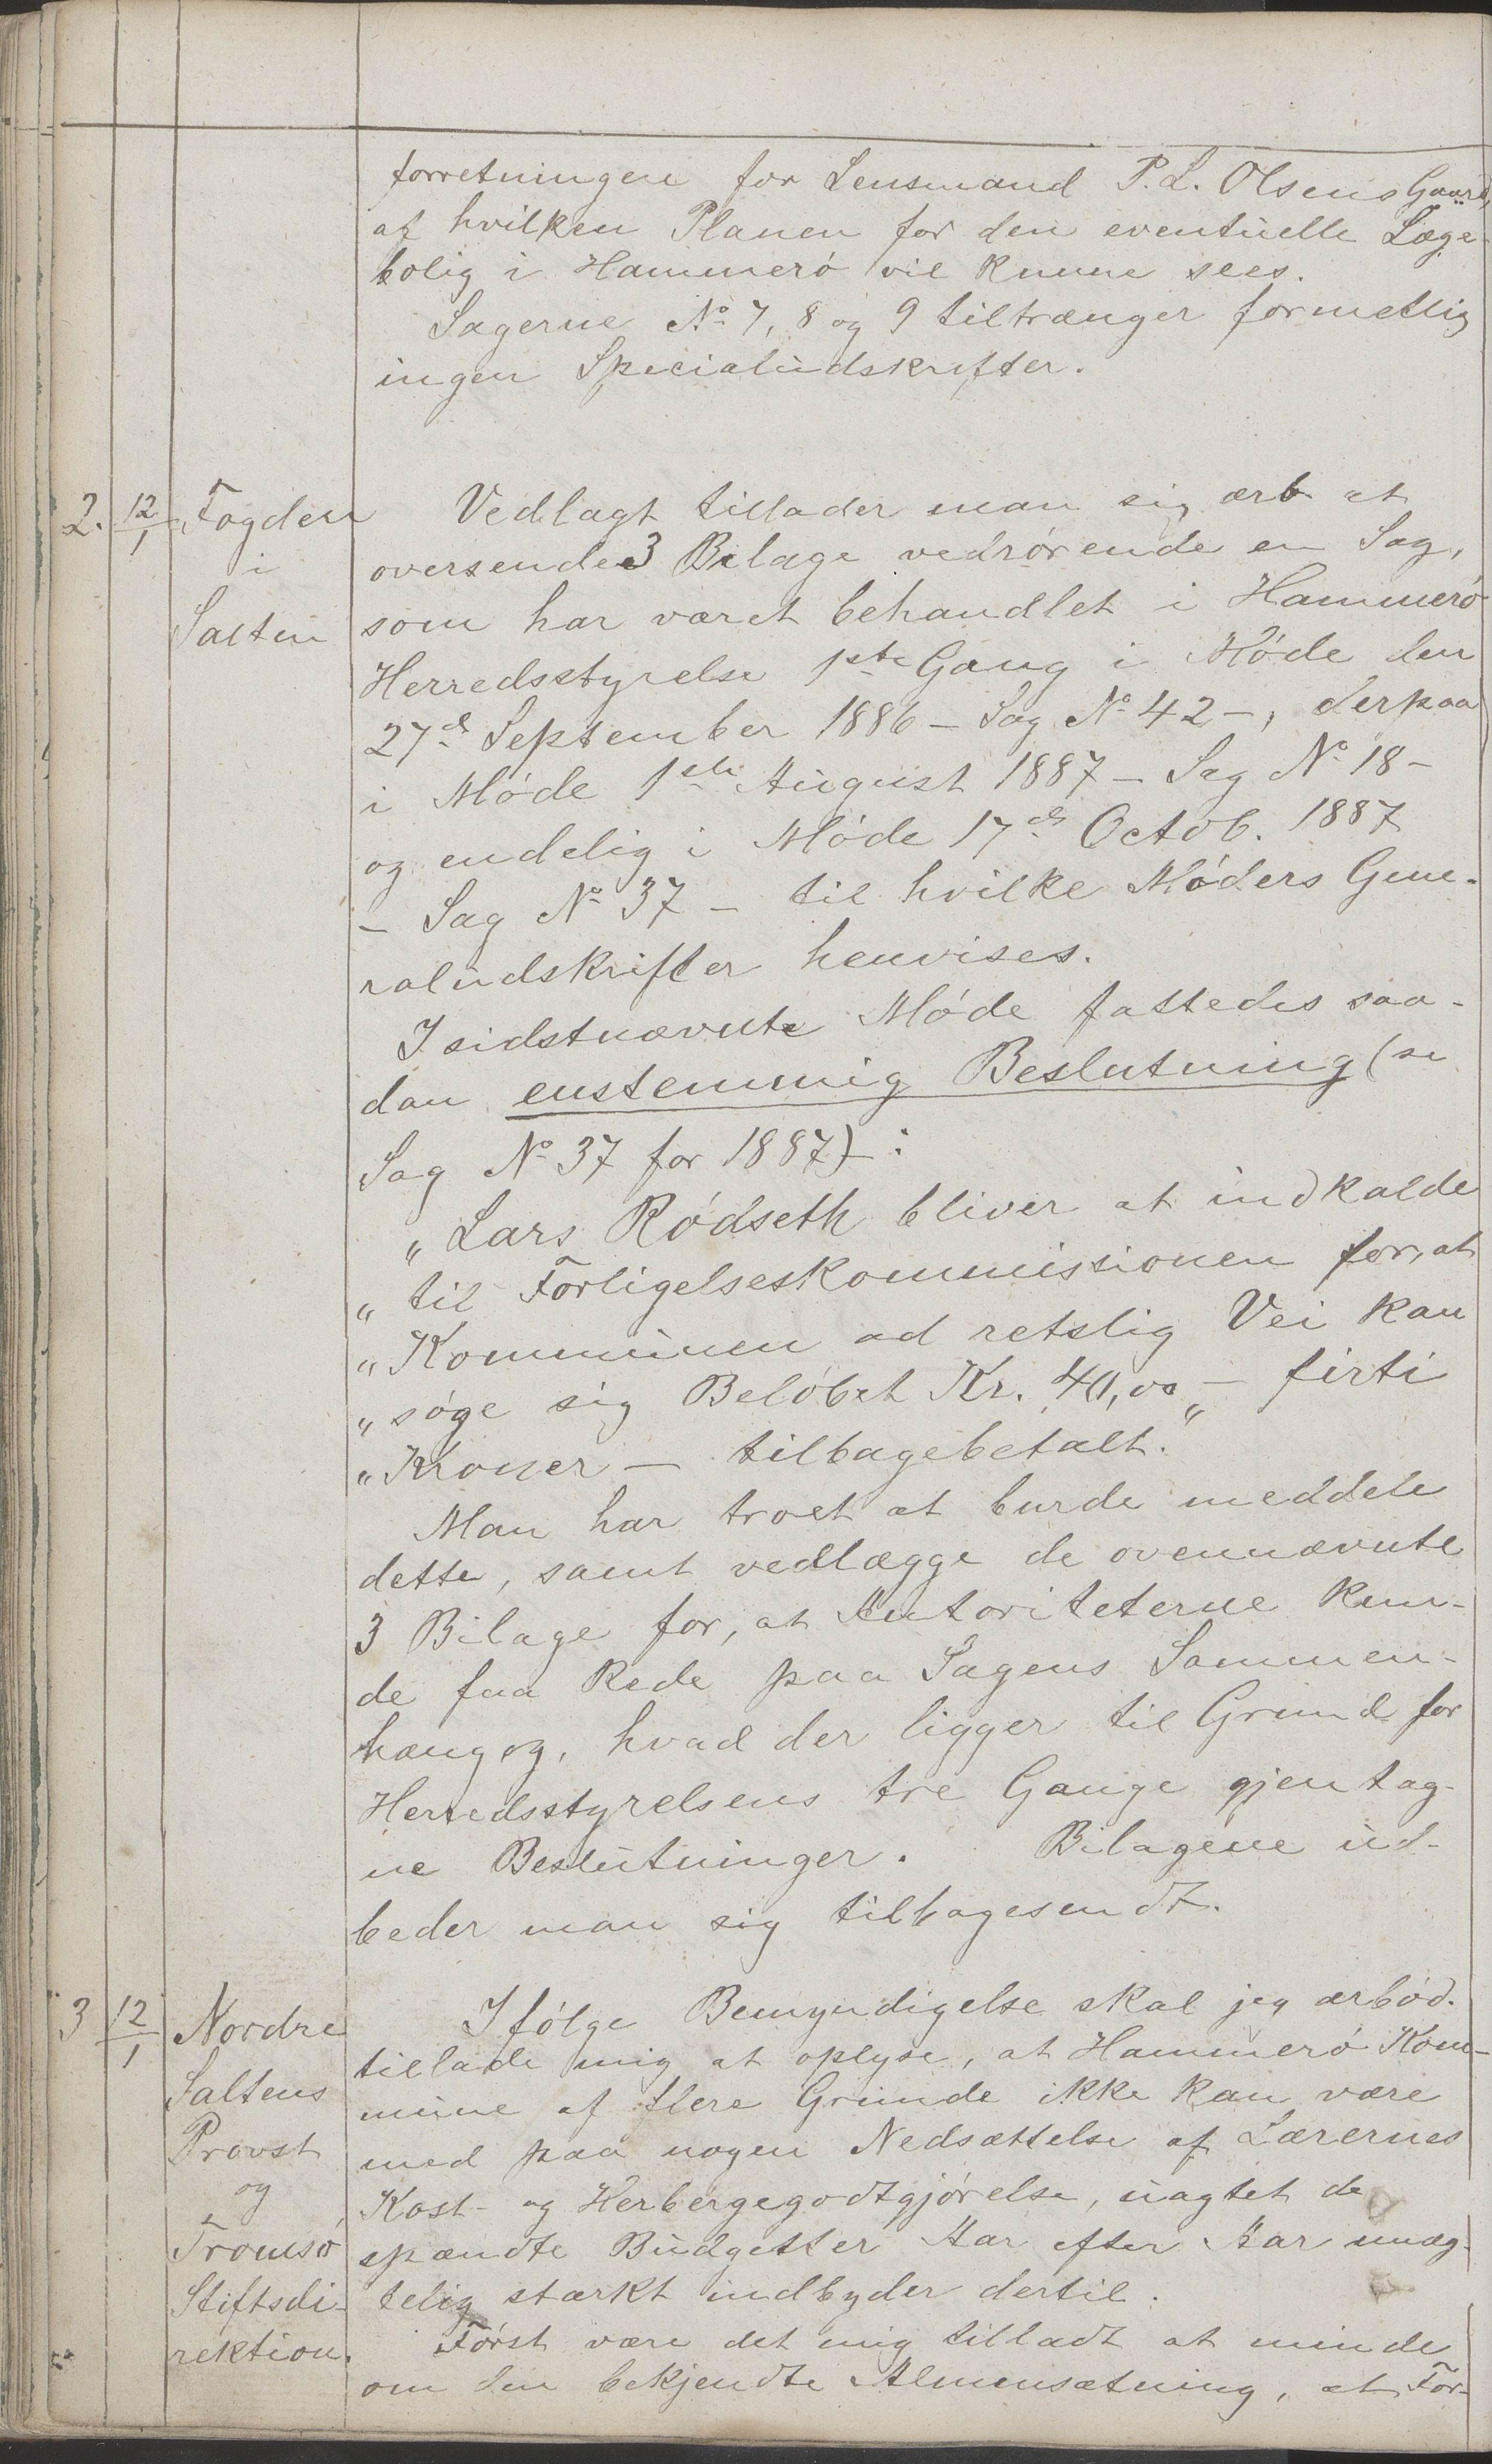 forretningen for Lensmand P. L. Olsens Gaard,
af hvilken Planen for den eventuelle Læge-
bolig i Hammerö vil kunne sees.
Sagerne No 7, 8 og 9 tiltrænger formetlig
ingen Specialudskrifter.
2. 12/1 Fogden
i
Salten
Vedlagt tillader man sig ærb. at
oversende 3 Bilage vedrörende en Sag,
som har været behandlet i Hammerö
Herredsstyrelse 1ste Gang i Möde den
27de September 1886 - Sag No 42 -, derpaa
i Möde 1ste August 1887 - Sag No 18 -
og endelig i Möde 17de Octob. 1887
- Sag No 37 - til hvilke Möders Gene-
raludskrifter henvises.
I sidstnævnte Möde fattedes saa-
dan enstemmig Beslutning (se
Sag No 37 for 1887) :
„Lars Rödseth bliver at indkalde
„til Forligelseskommissionen for, at
„Kommunen ad retslig Vei kan
„söge sig Belöbet Kr. 40,00 - firti
„Kroner - tilbagebetalt."
Man har troet at burde meddele
dette, samt vedlægge de ovennævnte
3 Bilage for, at Autoriteterne kun-
de faa Rede paa Sagens Sammen-
hæng og, hvad der ligger til Grund for
Herredsstyrelsens tre Gange gjentag-
ne Beslutninger. Bilagene ud-
beder man sig tilbagesendt.
3 12/1 Nordre
Saltens
Provst
og
Tromsö
Stiftsdi-
rektion.
Ifölge Bemyndigelse skal jeg ærböd.
tillade mig at oplyse, at Hammerö Kom-
mune af flere Grunde ikke kan være
med paa nogen Nedsættelse af Lærernes
Kost- og Herbergegodtgjörelse, uagtet de
spændte Budgetter Aar efter Aar unæg-
telig stærkt indbyder dertil.
Först være det mig tilladt at minde
om den bekjendte Almensætning, at For-